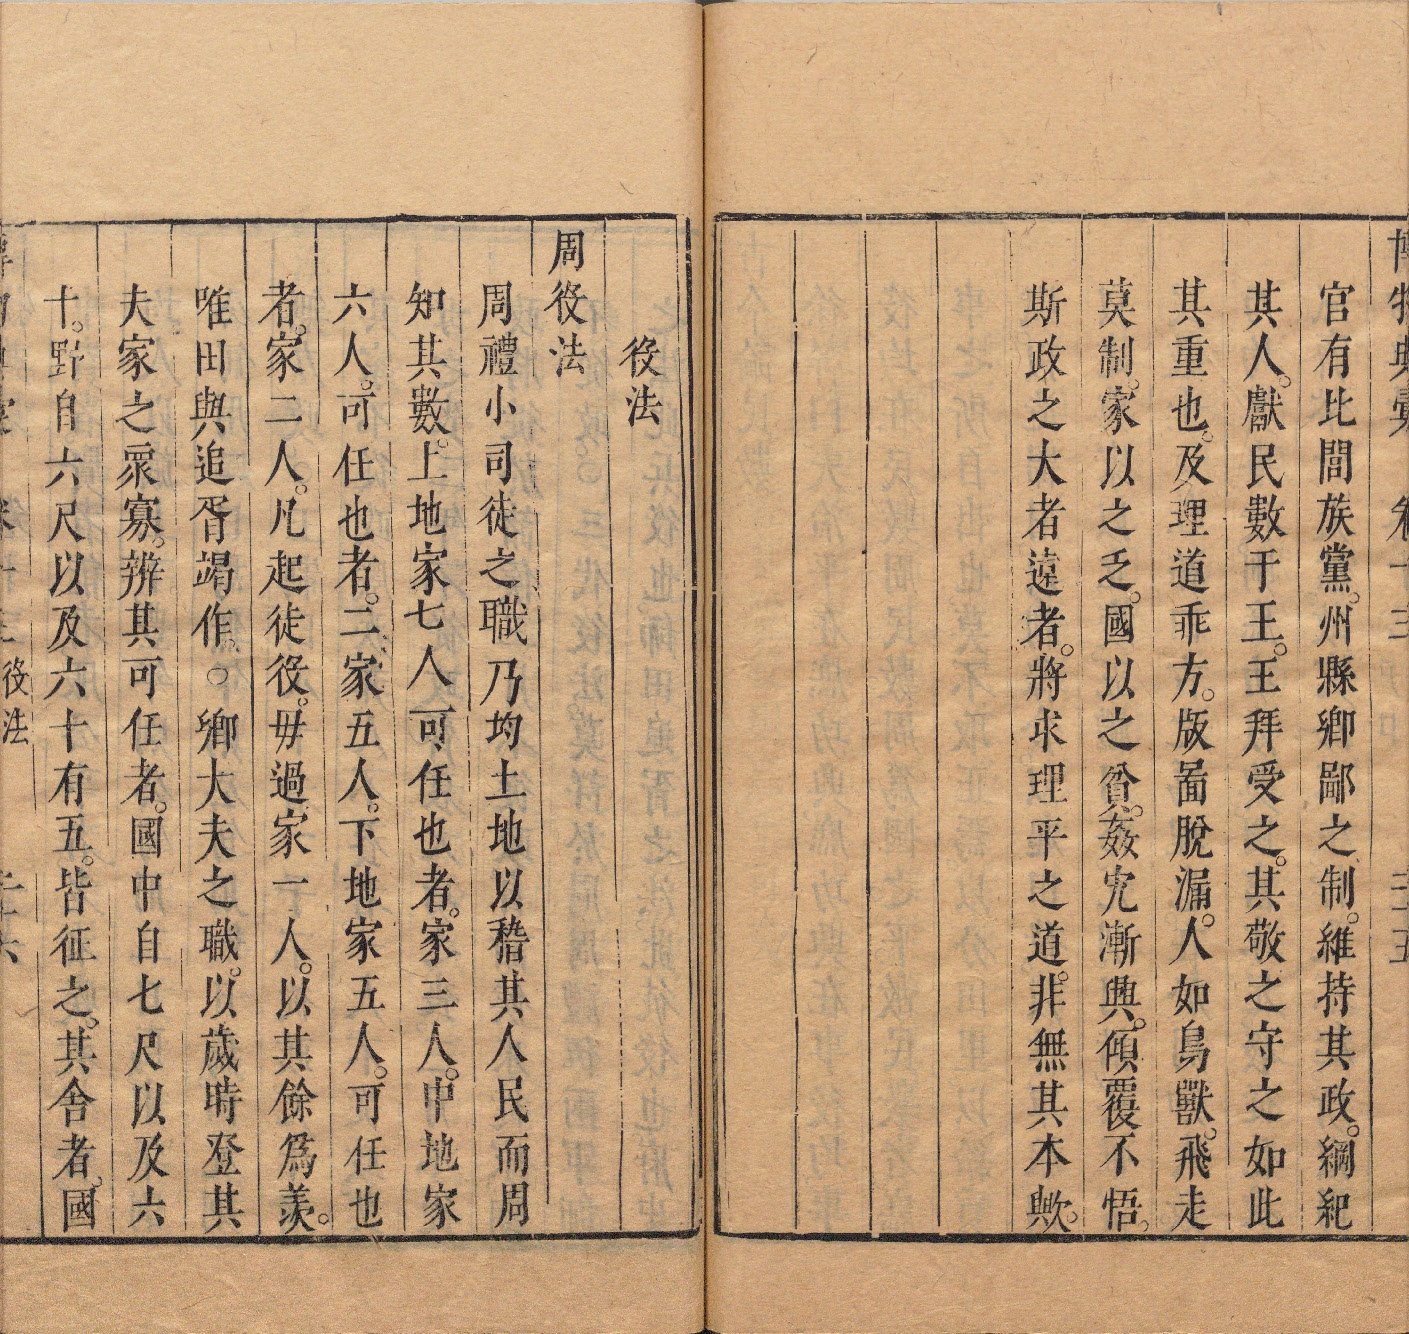 博物典彙 卷十三 二十五
官有比閭族黨。州縣鄉鄙之制。維持其政。綱紀
其人。獻民數于王。王拜受之。其敬之守之如此
其重也。及理道乖方。版啚脫漏。人如鳥獸。飛走
莫制。家以之乏。國以之貧。姦宄漸興。傾覆不悟。
斯政之大者遠者。將求理平之道。非無其本歟。
役法
周役法
周禮小司徒之職乃均土地以稽其人民而周
知其數。上地家七人可任也者。家三人。中地家
六人。可任也者。二家五人。下地家五人。可任也
者。家二人。凡起徒役。毋過家一人。以其餘爲羨。
唯田與追胥竭作。○鄉大夫之職。以歲時登其
夫家之眾寡。辨其可任者。國中自七尺以及六
十。野自六尺以及六十有五。皆征之。其舍者。國
博物典彙 卷十三 役法 二十六